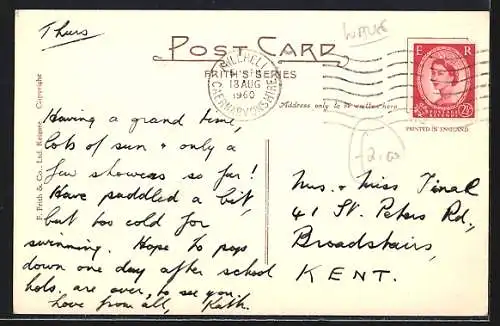 Thurs
POST CARD
FRITH'S SERIES
PWLLHELI
18 AUG
1960
CAERNARVONSHIRE
E R
2½
Address only to be written here
PRINTED IN ENGLAND
£2.00
F. Frith & Co., Ltd. Reigate. Copyright
Having a grand time,
lots of sun & only a
few showers so far!
Have paddled a bit,
but too cold for
swimming. Hope to pop
down one day after school
hols. are over, to see you.
Love from all, Kath.
Mrs. & Miss
41 St. Peters Rd,
Broadstairs,
KENT.